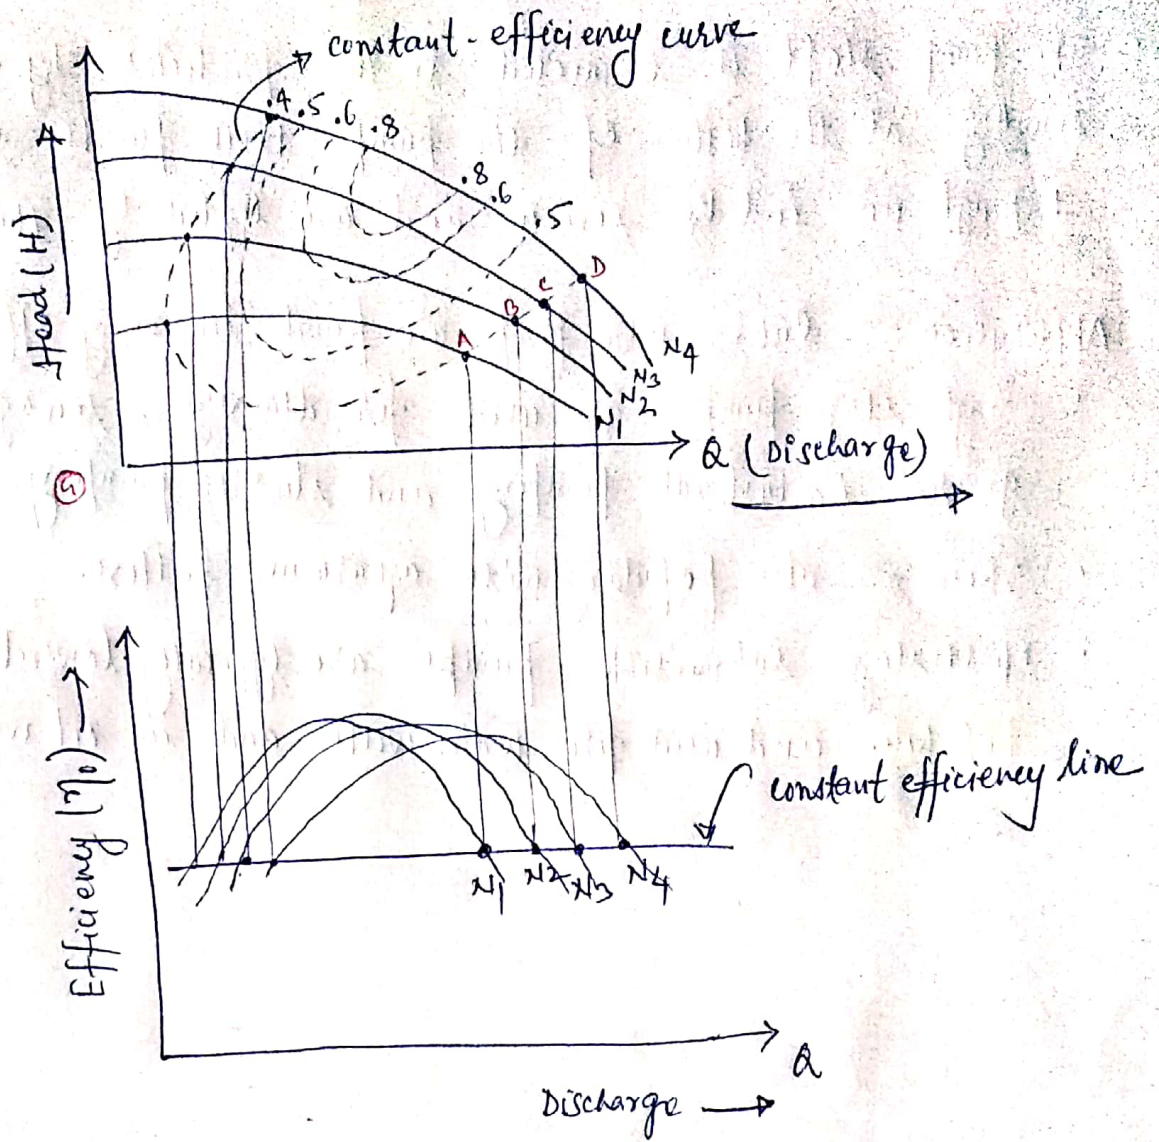 constant-efficiency curve
.4 .5 .6 .8
.8
.6
.5
Head (H)
A
B
C
D
N4
N3
N2
N1
Q (Discharge)
4
Efficiency (η₀)
constant efficiency line
N1 N2 N3 N4
Q
Discharge